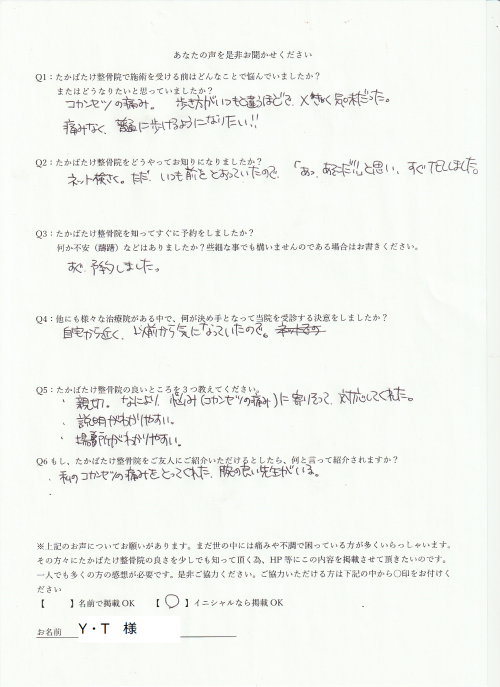 あなたの声を是非お聞かせください
Q1：たかばたけ整骨院で施術を受ける前はどんなことで悩んでいましたか？
またはどうなりたいと思っていましたか？
コカンセツの痛み。 歩き方がいつもと違うほどでき、メきゅく気味だった。
痛みなく、普通に歩けるようになりたい!!
Q2：たかばたけ整骨院をどうやってお知りになりましたか？
ネット検さく。ただ、いつも前をとおっていたので、「あっ、あそこだ!」と思い、すぐTELしました。
Q3：たかばたけ整骨院を知ってすぐに予約をしましたか？
何か不安（躊躇）などはありましたか？些細な事でも構いませんのである場合はお書きください。
すぐ、予約しました。
Q4：他にも様々な治療院がある中で、何が決め手となって当院を受診する決意をしましたか？
自宅から近く、以前から気になっていたので。
Q5：たかばたけ整骨院の良いところを３つ教えてください。
・親切。なにより、悩み(コカンセツの痛み)に寄りそって、対応してくれた。
・説明がわかりやすい。
・場所がわかりやすい。
Q6 もし、たかばたけ整骨院をご友人にご紹介いただけるとしたら、何と言って紹介されますか？
・私のコカンセツの痛みをとってくれた、腕の良い先生がいる。
・
※上記のお声についてお願いがあります。まだ世の中には痛みや不調で困っている方が多くいらっしゃいます。
その方々にたかばたけ整骨院の良さを少しでも知って頂く為、HP 等にこの内容を掲載させて頂きたいのです。
一人でも多くの方の感想が必要です。是非ご協力ください。ご協力いただける方は下記の中から〇印をお付けく
ださい
【　　】名前で掲載 OK 【 〇 】イニシャルなら掲載 OK
お名前 Y・T 様